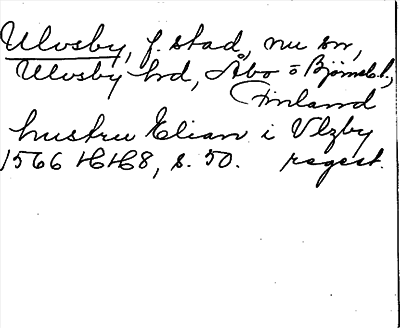 Ulvsby, f. stad, nu sn,
Ulvsby hd, Åbo o Björneb. l.,
Finland
hustru Elian i Vlzby
1566 HH8, s. 50. regest.